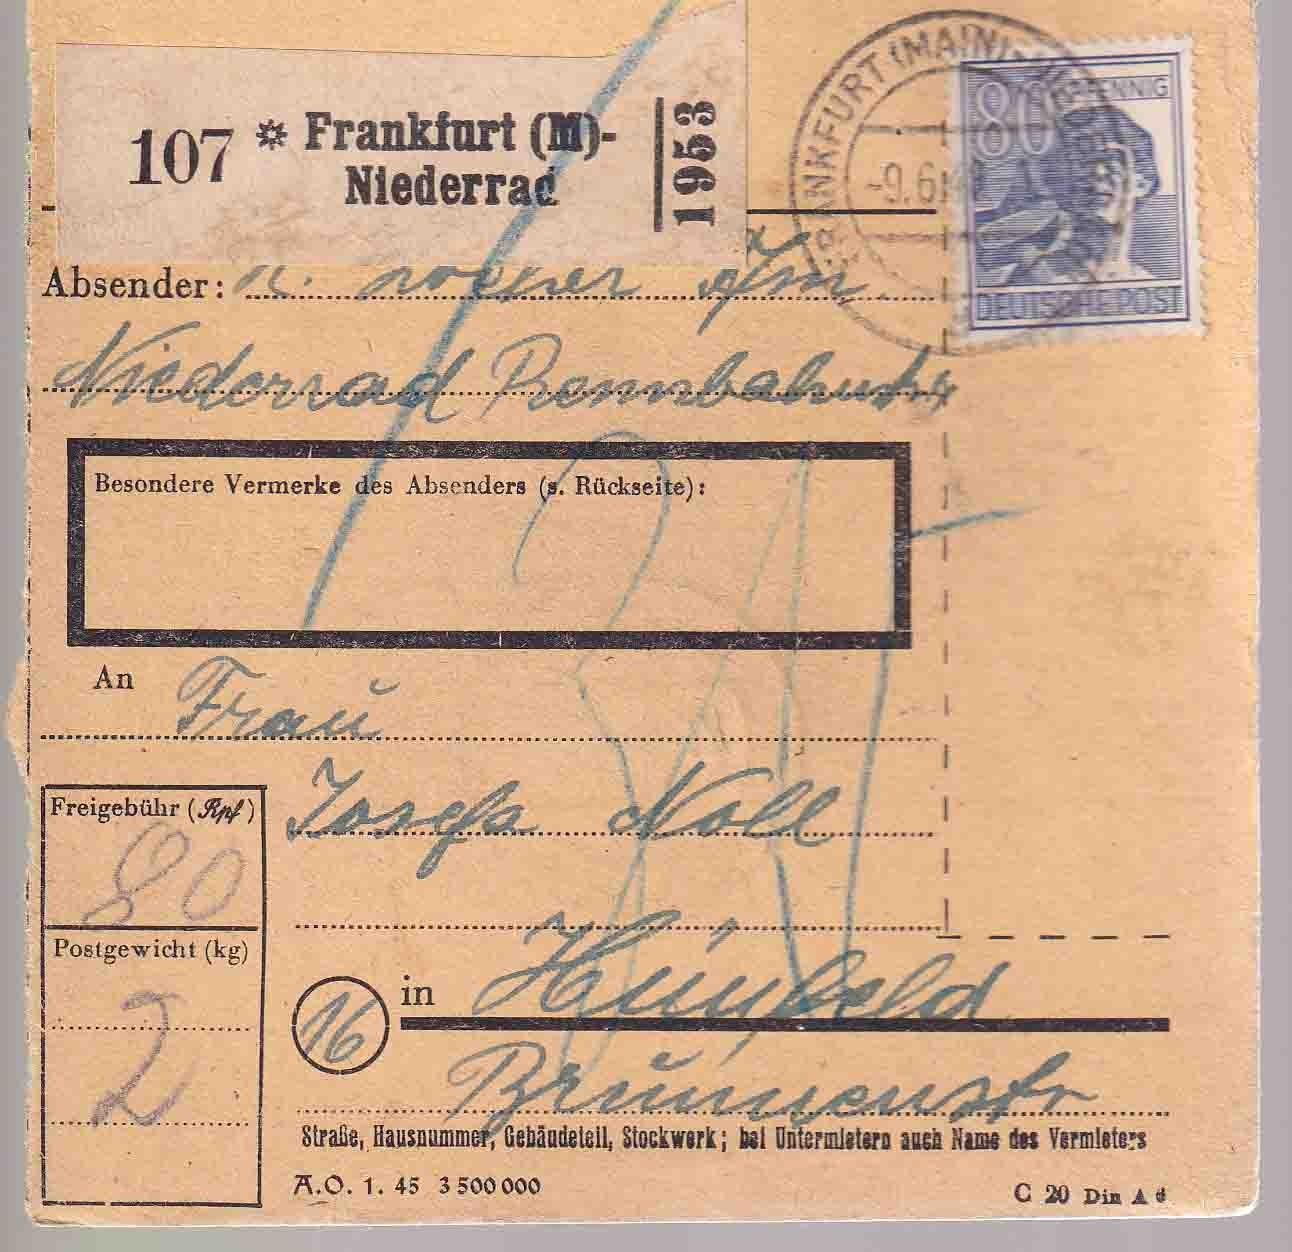 107 * Frankfurt (M)-
Niederrad
1953
FRANKFURT (MAIN)
-9.6.
80 PFENNIG
DEUTSCHE POST
Absender:
Niederrad Rennbahnstr
Besondere Vermerke des Absenders (s. Rückseite):
An Frau
Josefa Noll
Freigebühr (Rpf)
80
Postgewicht (kg)
2
16 in Hünfeld
Brunnenstr
Straße, Hausnummer, Gebäudeteil, Stockwerk; bei Untermietern auch Name des Vermieters
A.O. 1. 45 3 500 000
C 20 Din A 6